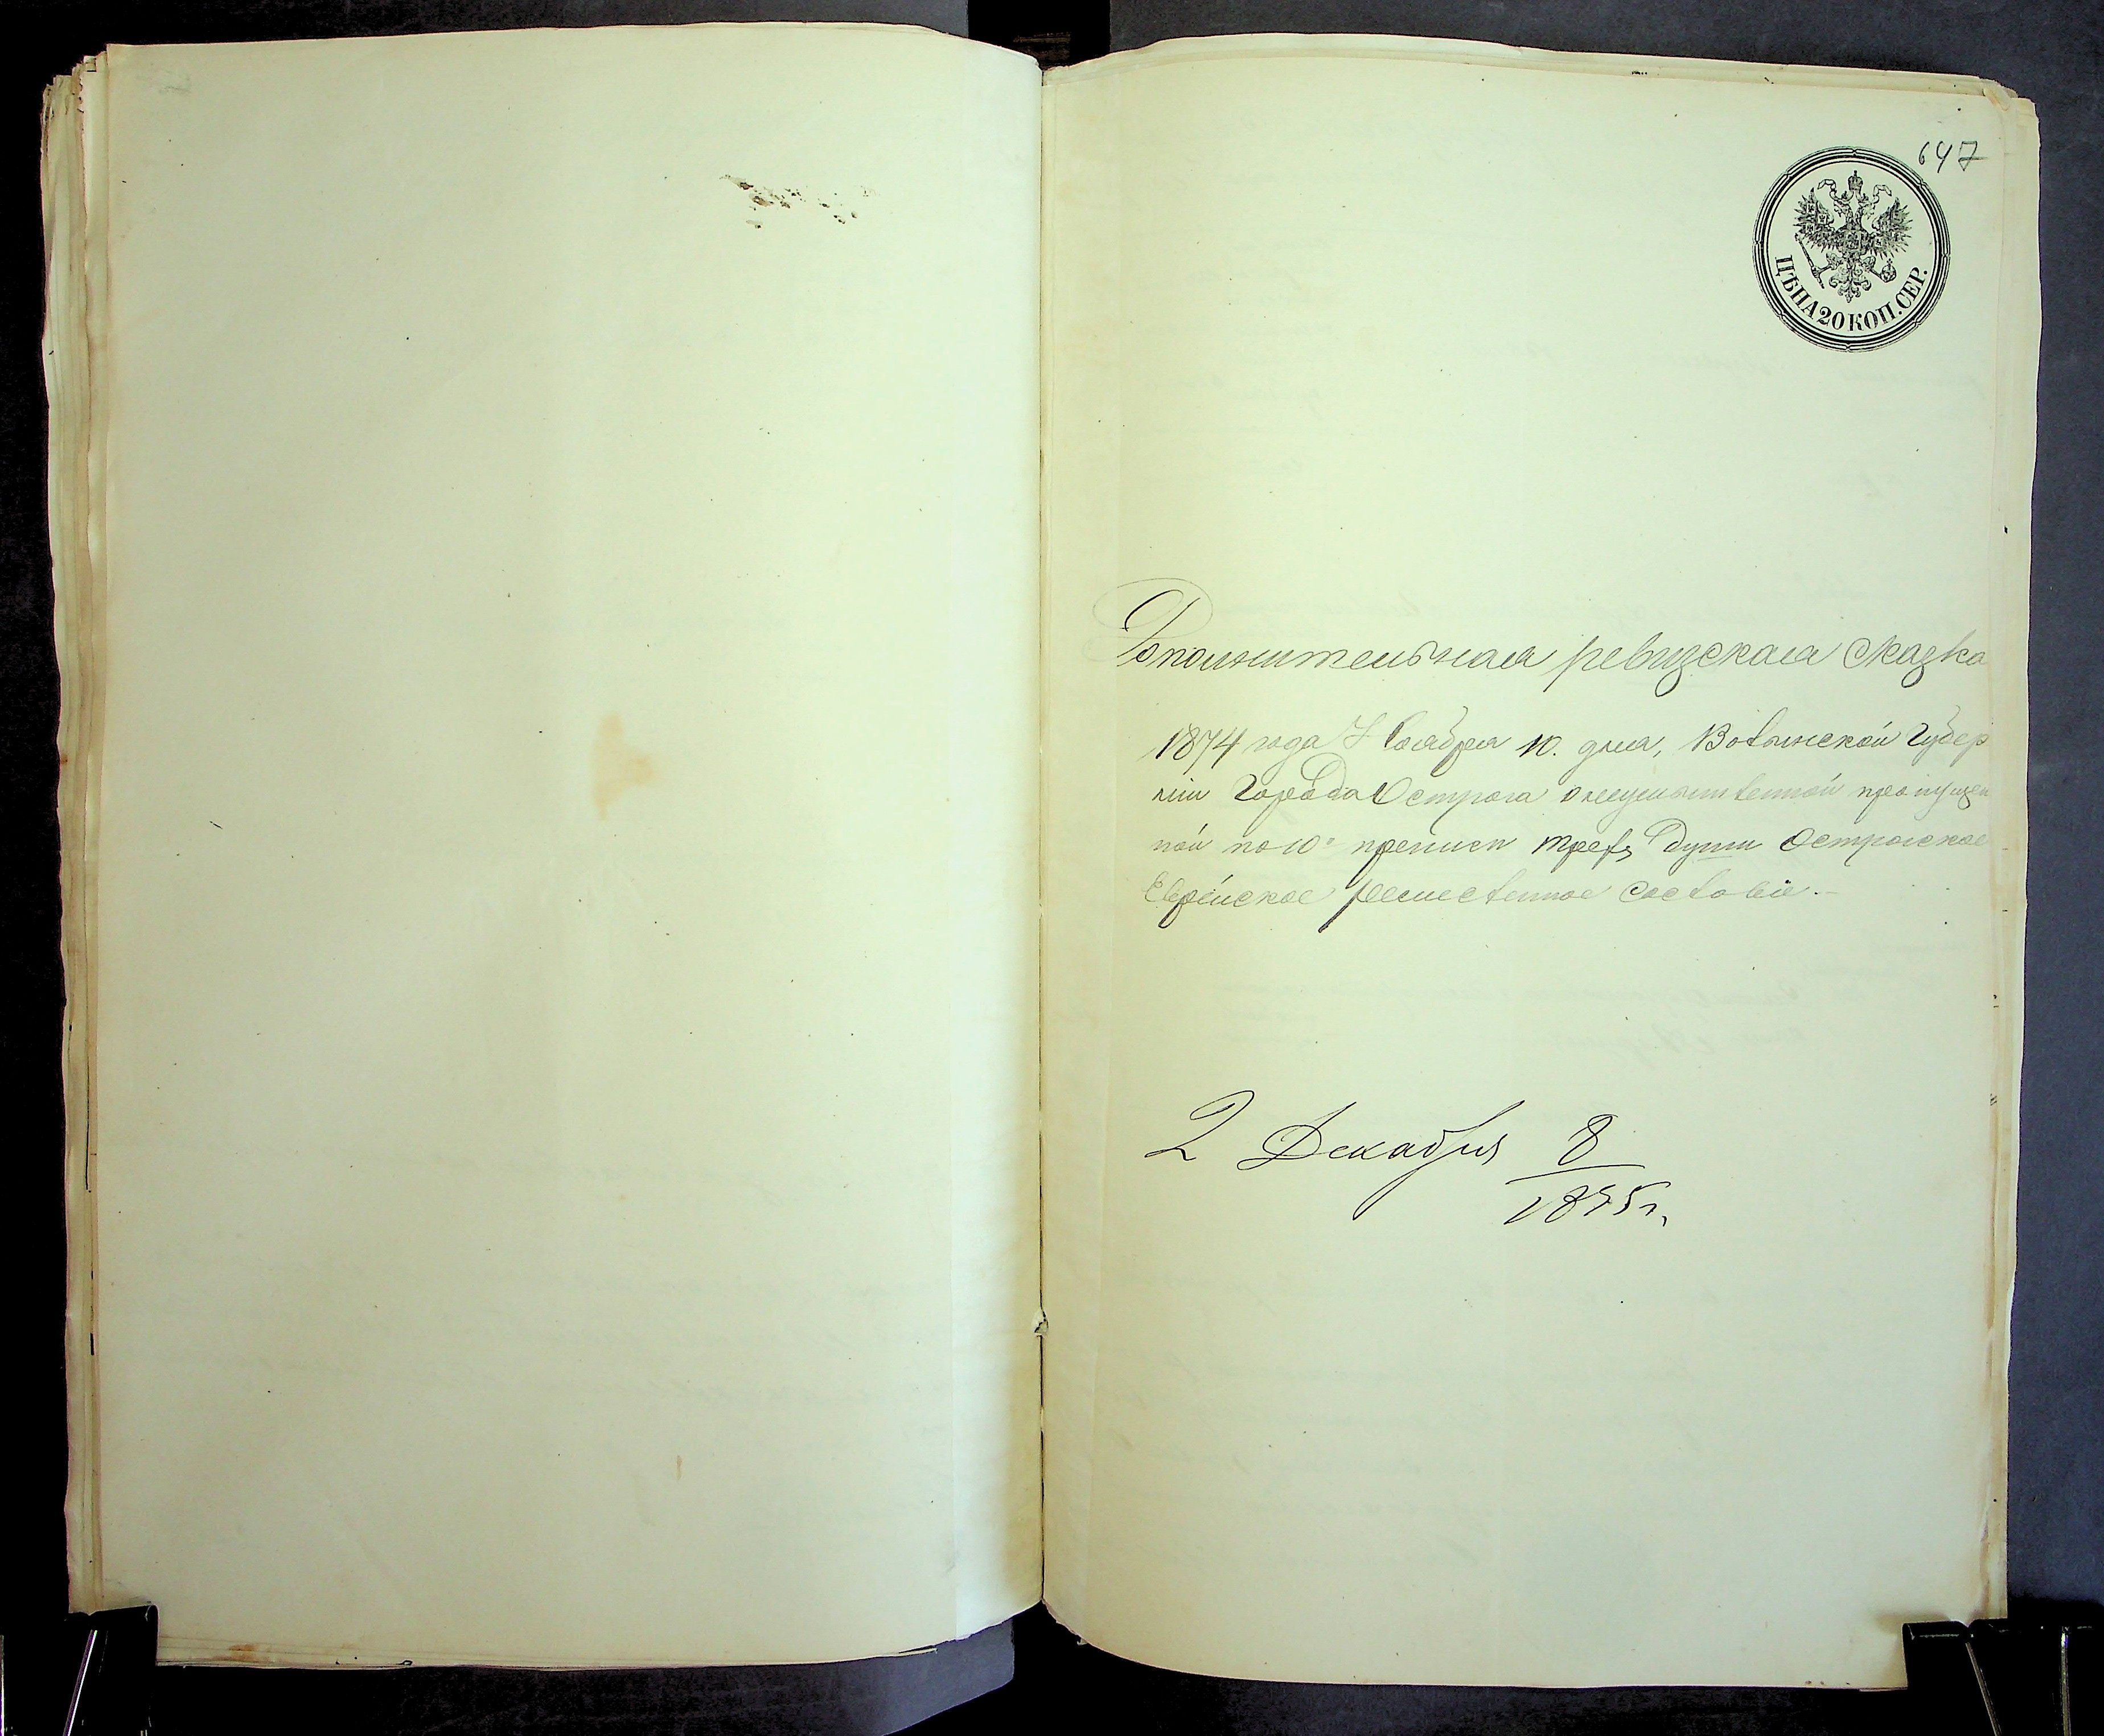 647
ЦѢНА 20 КОП. СЕР.
Дополнительная ревизская сказка
1874 года Ноября 10. дня, Волынской Губер
ніи Города Острога о мужеска
ной по 10й переписи души Острогское
Еврейское ремесленное сословіе.-
2 Декабря 8
1875 г.